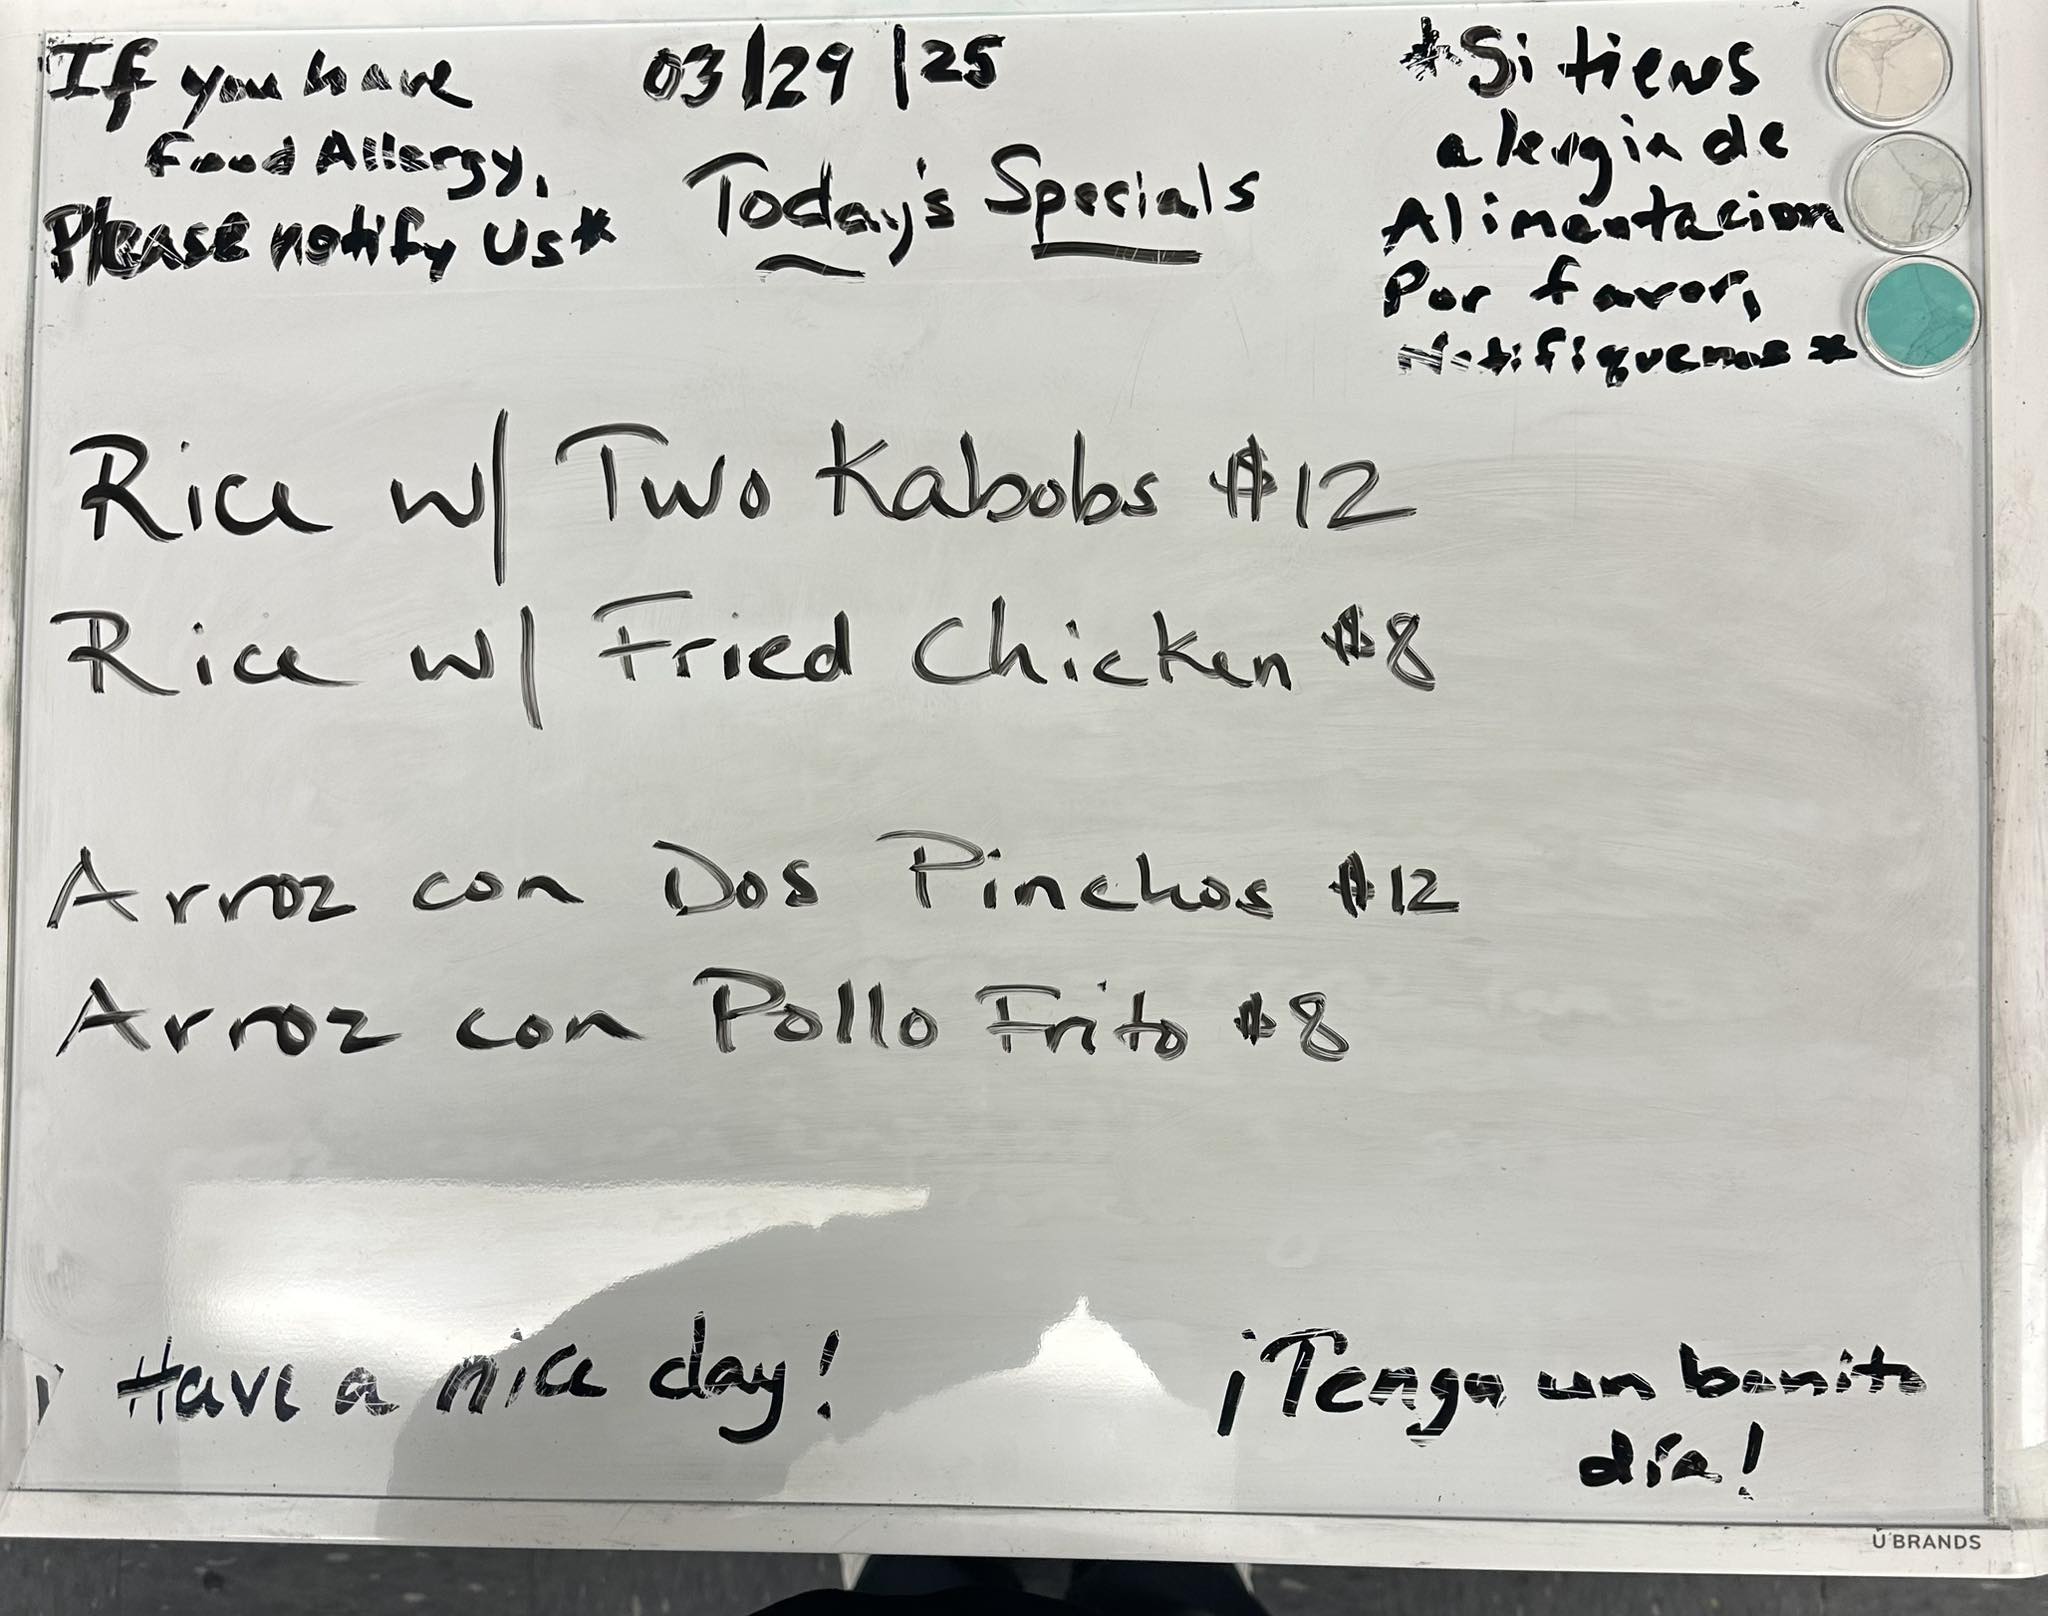 If you have
Food Allergy,
Please notify Us*
03/29/25
Today's Specials
*Si tienes
alergia de
Alimentacion
Por favor,
Notifiquenos*
Rice w/ Two Kabobs $12
Rice w/ Fried Chicken $8
Arroz con Dos Pinchos $12
Arroz con Pollo Frito $8
Have a nice day!
¡Tenga un bonito
día!
U BRANDS